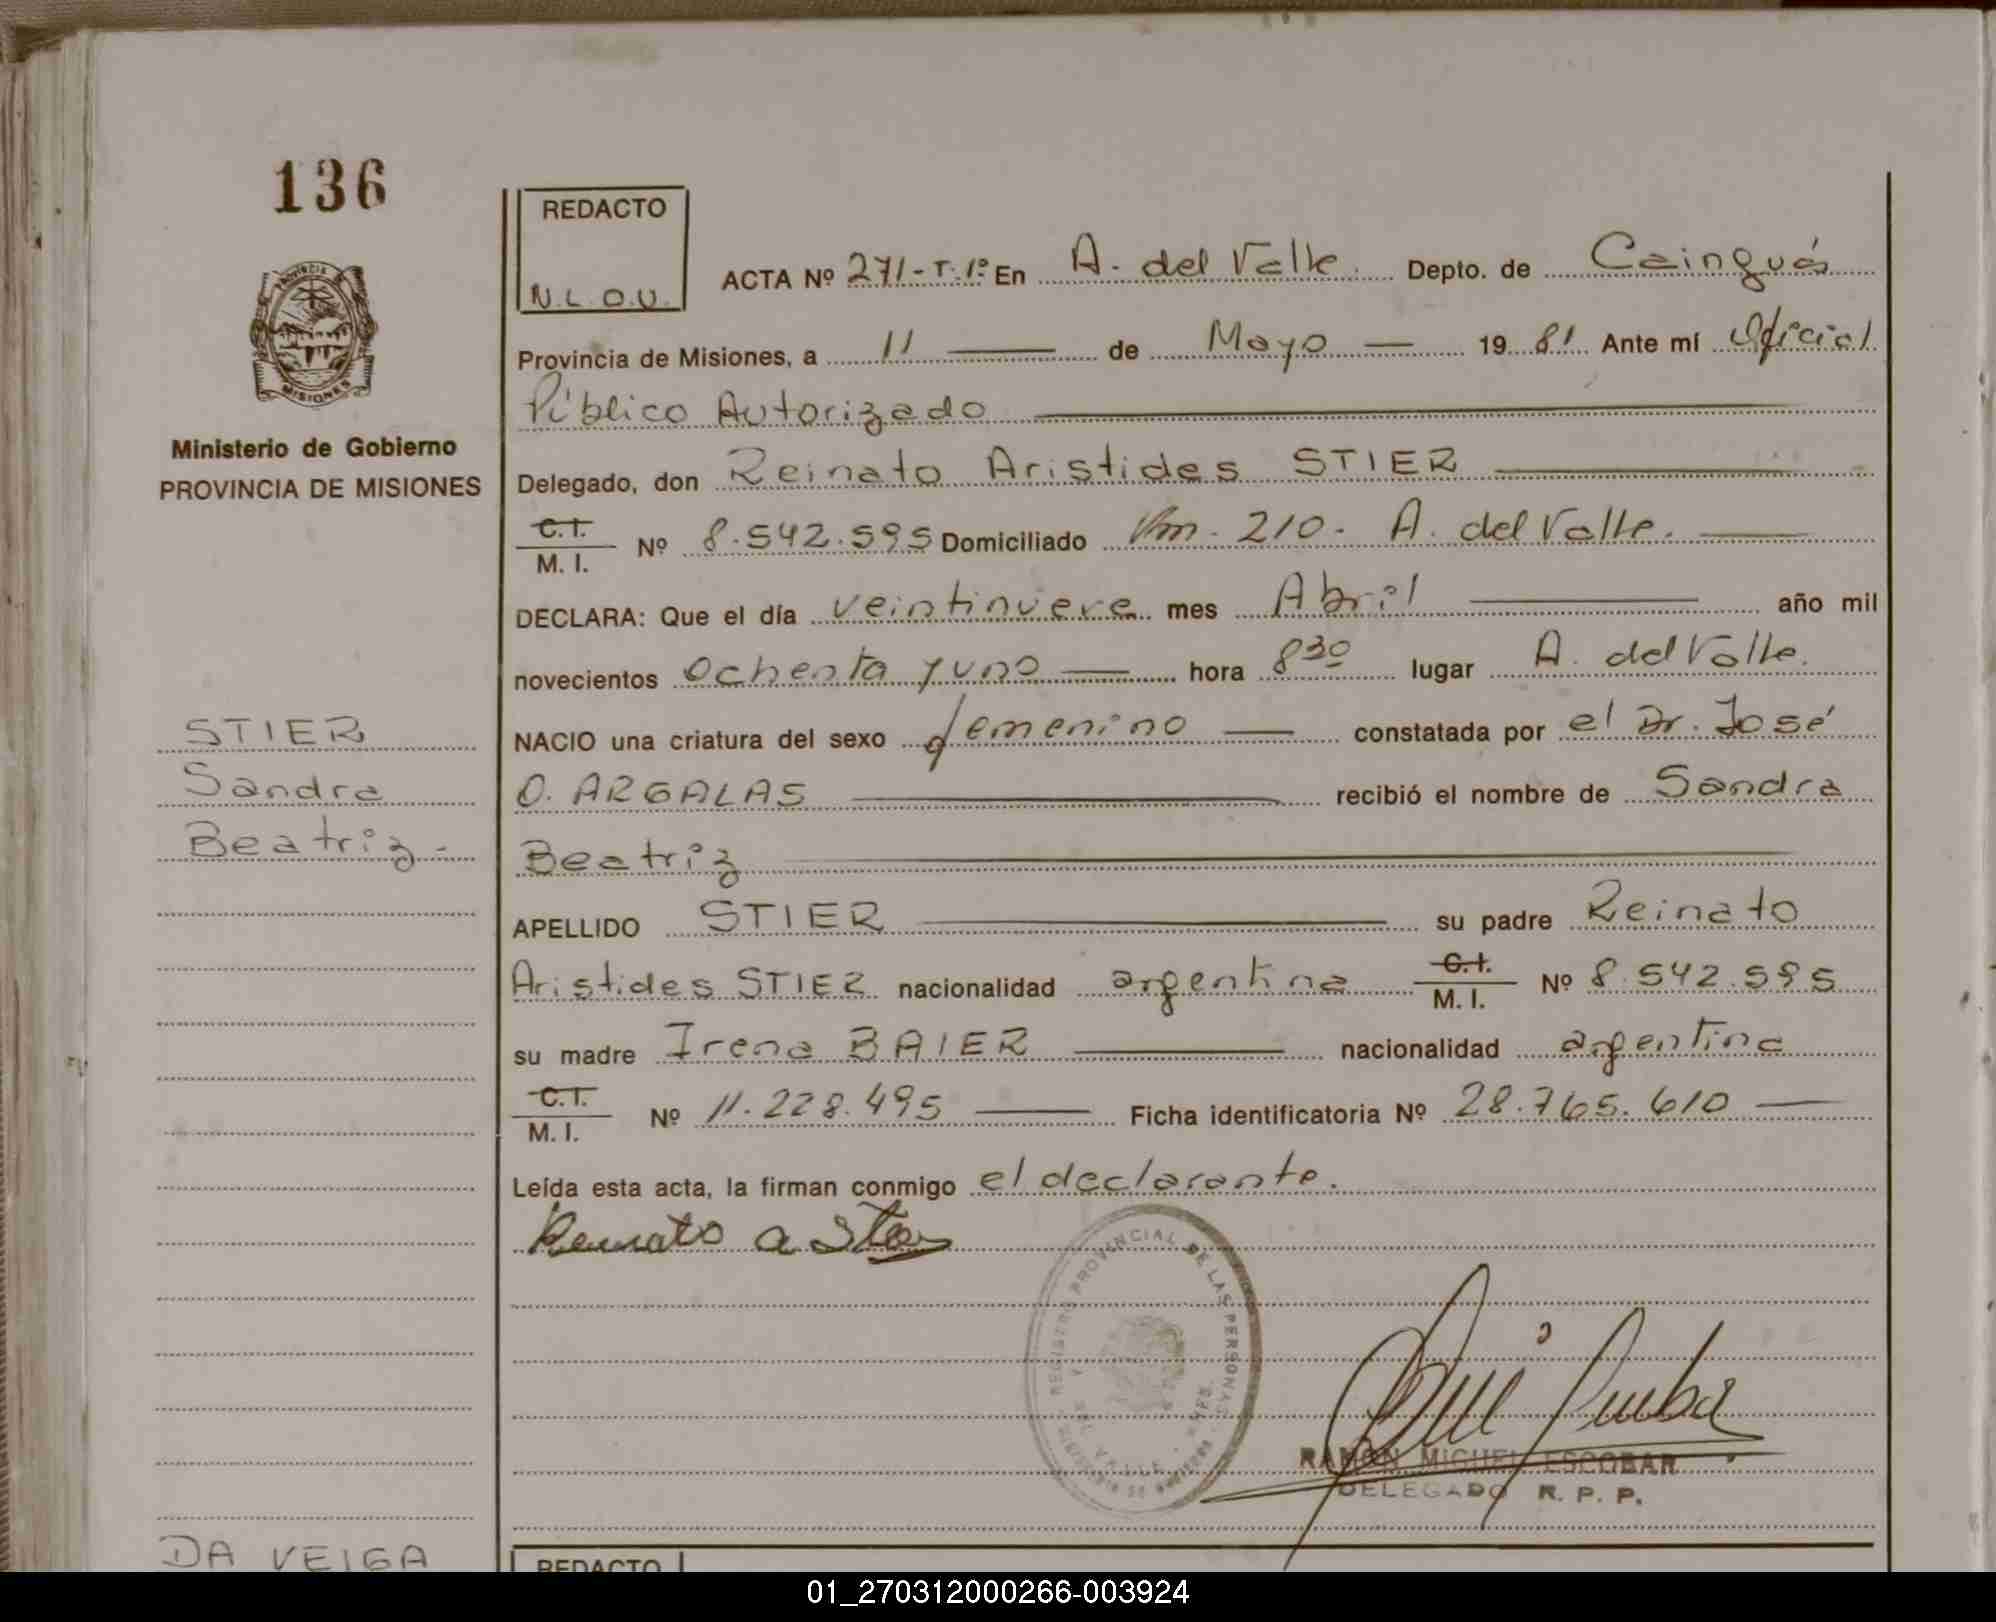 136
PROVINCIA
MISIONES
Ministerio de Gobierno
PROVINCIA DE MISIONES
STIER
Sandra
Beatriz -
DA VEIGA
REDACTO
N.L.O.U.
ACTA Nº 271-T.1º En A. del Valle Depto. de Cainguás
Provincia de Misiones, a 11 de Mayo 19 81 Ante mí Oficial
Público Autorizado
Delegado, don Reinato Aristides STIER
C.I. / M. I. Nº 8.542.595 Domiciliado Km. 210 - A. del Valle.
DECLARA: Que el día veintinueve mes Abril año mil
novecientos ochenta y uno hora 8 30 lugar A. del Valle.
NACIO una criatura del sexo femenino constatada por el Dr. José
O. ARGALAS recibió el nombre de Sandra
Beatriz
APELLIDO STIER su padre Reinato
Aristides STIER nacionalidad argentina C.I. / M. I. Nº 8.542.595
su madre Irena BAIER nacionalidad argentina
C.I. / M. I. Nº 11.228.495 Ficha identificatoria Nº 28.765.610
Leída esta acta, la firman conmigo el declarante.
REGISTRO PROVINCIAL DE LAS PERSONAS
DEL VALLE
RAMON MIGUEL ESCOBAR
DELEGADO R. P. P.
REDACTO
01_270312000266-003924